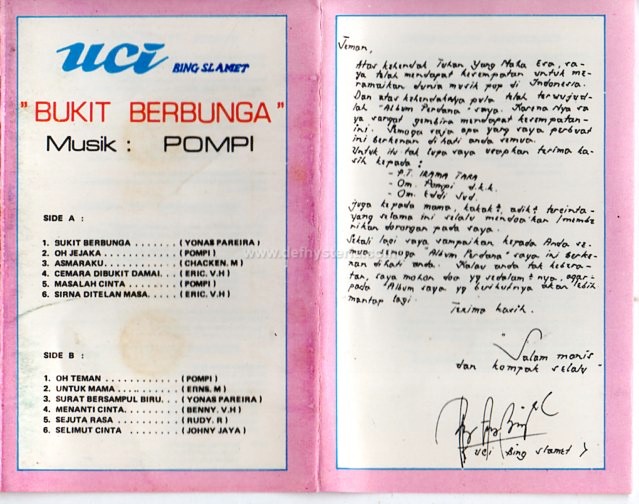 uci BING SLAMET
"BUKIT BERBUNGA"
Musik : POMPI
SIDE A :
1. SUKIT BERBUNGA ...... ( YONAS PAREIRA )
2. OH JEJAKA ............ ( POMPI )
3. ASMARAKU ............ ( CHACKEN. M )
4. CEMARA DIBUKIT DAMAI. .. ( ERIC. V.H )
5. MASALAH CINTA ......... ( POMPI )
6. SIRNA DITELAN MASA. .... ( ERIC. V.H )
SIDE B :
1. OH TEMAN .............. ( POMPI )
2. UNTUK MAMA ............ ( ERNS. M )
3. SURAT BERSAMPUL BIRU. ... ( YONAS PAREIRA )
4. MENANTI CINTA. .......... ( BENNY. V.H )
5. SEJUTA RASA ............ ( RUDY. R )
6. SELIMUT CINTA ......... ( JOHNY JAYA )
Teman,
Atas kehendak Tuhan Yang Maha Esa, sa-
ya telah mendapat kesempatan untuk me-
ramaikan dunia musik pop di Indonesia.
Dan atas kehendakNya pula telah terwujud-
lah "Album Perdana" saya. Karena Nya sa
ya sangat gembira mendapat kesempatan-
ini. Semoga saja apa yang saya perbuat
ini berkenan di hati anda semua.
Untuk itu tak lupa saya ucapkan terima ka-
sih kepada :
- P.T. IRAMA TARA
- Om. Pompi d.k.k.
- Om. Eddi Sud.
Juga kepada mama, kakak², adik² tercinta-
yang selama ini selalu mendoa'kan /membe
rikan dorongan pada saya.
Sekali lagi saya sampaikan kepada Anda se-
mua, semoga "Album Perdana" saya ini berke-
nan di hati anda. Kalau anda tak kebera-
tan, saya mohon doa yg sedalam²nya, agar-
pada "Album saya yg berikutnya akan lebih
mantap lagi.
Terima kasih.
Salam manis
dan kompak selalu
uci Bing Slamet